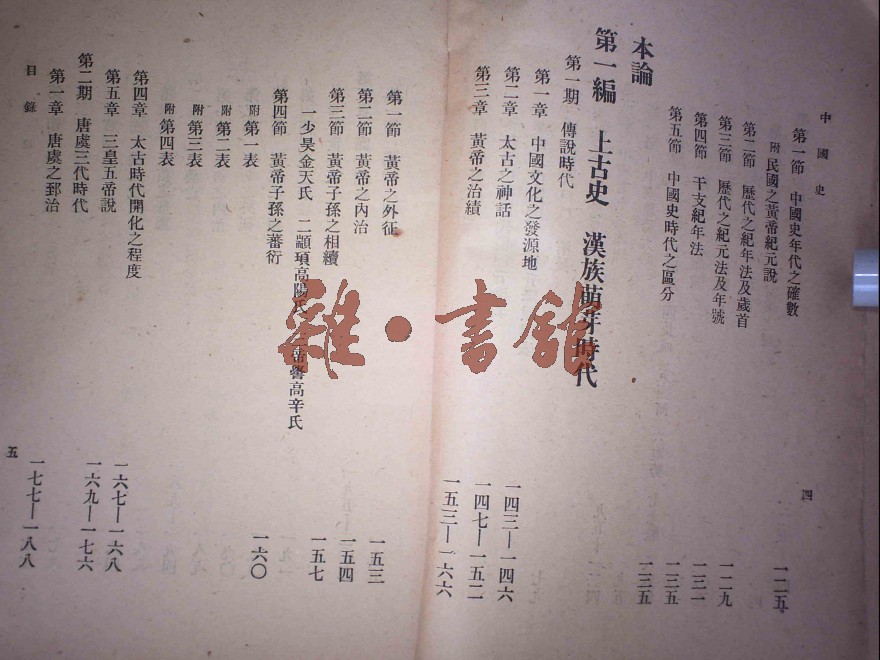 中國史
四
第一節 中國史年代之確數 一二五
附 民國之黃帝紀元說
第二節 歷代之紀年法及歲首 一二九
第三節 歷代之紀元法及年號 一三一
第四節 干支紀年法 一三五
第五節 中國史時代之區分 一三五
本論
第一編 上古史 漢族萌芽時代
第一期 傳說時代
第一章 中國文化之發源地 一四三—一四六
第二章 太古之神話 一四七—一五二
第三章 黃帝之治績 一五三—一六六
第一節 黃帝之外征 一五三
第二節 黃帝之內治 一五四
第三節 黃帝子孫之相續 一五七
一少昊金天氏 二顓頊高陽氏 三帝嚳高辛氏
第四節 黃帝子孫之蕃衍 一六〇
附 第一表
附 第二表
附 第三表
附 第四表
第四章 太古時代開化之程度 一六七—一六八
第五章 三皇五帝說 一六九—一七六
第二期 唐虞三代時代
第一章 唐虞之郅治 一七七—一八八
目錄
五
雜·書館